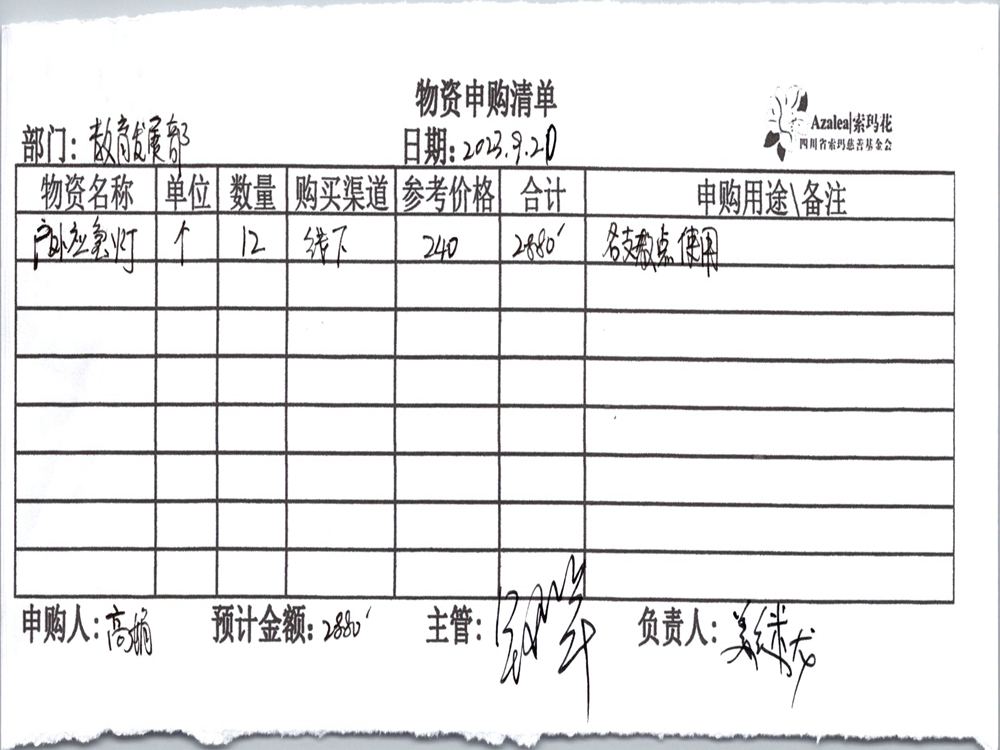 物资申购清单
Azalea|索玛花
四川省索玛慈善基金会
部门：教育发展部 日期：2023.9.20
物资名称 单位 数量 购买渠道 参考价格 合计 申购用途\备注
户外应急灯 个 12 线下 240 2880 各支教点使用
申购人：高娟 预计金额：2880 主管： 负责人：